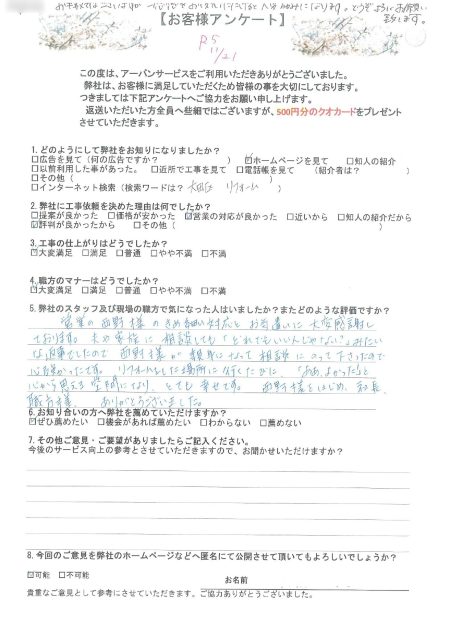 【お客様アンケート】
R5
11/21
この度は、アーバンサービスをご利用いただきありがとうございました。
弊社は、お客様に満足していただくため皆様の事を大切にしております。
つきましては下記アンケートへご協力をお願い申し上げます。
返送いただいた方全員へ些細ではございますが、500円分のクオカードをプレゼント
させていただきます。
1. どのようにして弊社をお知りになりましたか？
□広告を見て（何の広告ですか？ ） ☑ホームページを見て □知人の紹介
□以前利用した事があった。 □近所で工事を見て □電話帳を見て （紹介者は？ ）
□その他（ ）
□インターネット検索（検索ワードは？ 大田区 リフォーム ）
2. 弊社に工事依頼を決めた理由は何でしたか？
□提案が良かった □価格が安かった ☑営業の対応が良かった □近いから □知人の紹介だから
☑評判が良かったから □その他（ ）
3. 工事の仕上がりはどうでしたか？
☑大変満足 □満足 □普通 □やや不満 □不満
4. 職方のマナーはどうでしたか？
☑大変満足 □満足 □普通 □やや不満 □不満
5. 弊社のスタッフ及び現場の職方で気になった人はいましたか？またどのような評価ですか？
営業の西野様のきめ細い対応とお気遣いに大変感謝し
ております。夫や家族に相談しても「どれでもいいんじゃない」みたい
な返事でしたので西野様が親身になって相談にのって下さたので
心強かったです。リフォームした場所に行くたびに、「ああ、よかった」と
心から思える空間になり、とても幸せです。西野様をはじめ、社長、
職方様、ありがとうございました。
6. お知り合いの方へ弊社を薦めていただけますか？
☑ぜひ薦めたい □機会があれば薦めたい □わからない □薦めない
7. その他ご意見・ご要望がありましたらご記入ください。
今後のサービス向上の参考とさせていただきますので、お聞かせいただけますか？
8. 今回のご意見を弊社のホームページなどへ匿名にて公開させて頂いてもよろしいでしょうか？
☑可能 □不可能
お名前
貴重なご意見として参考にさせていただきます。ご協力ありがとうございました。